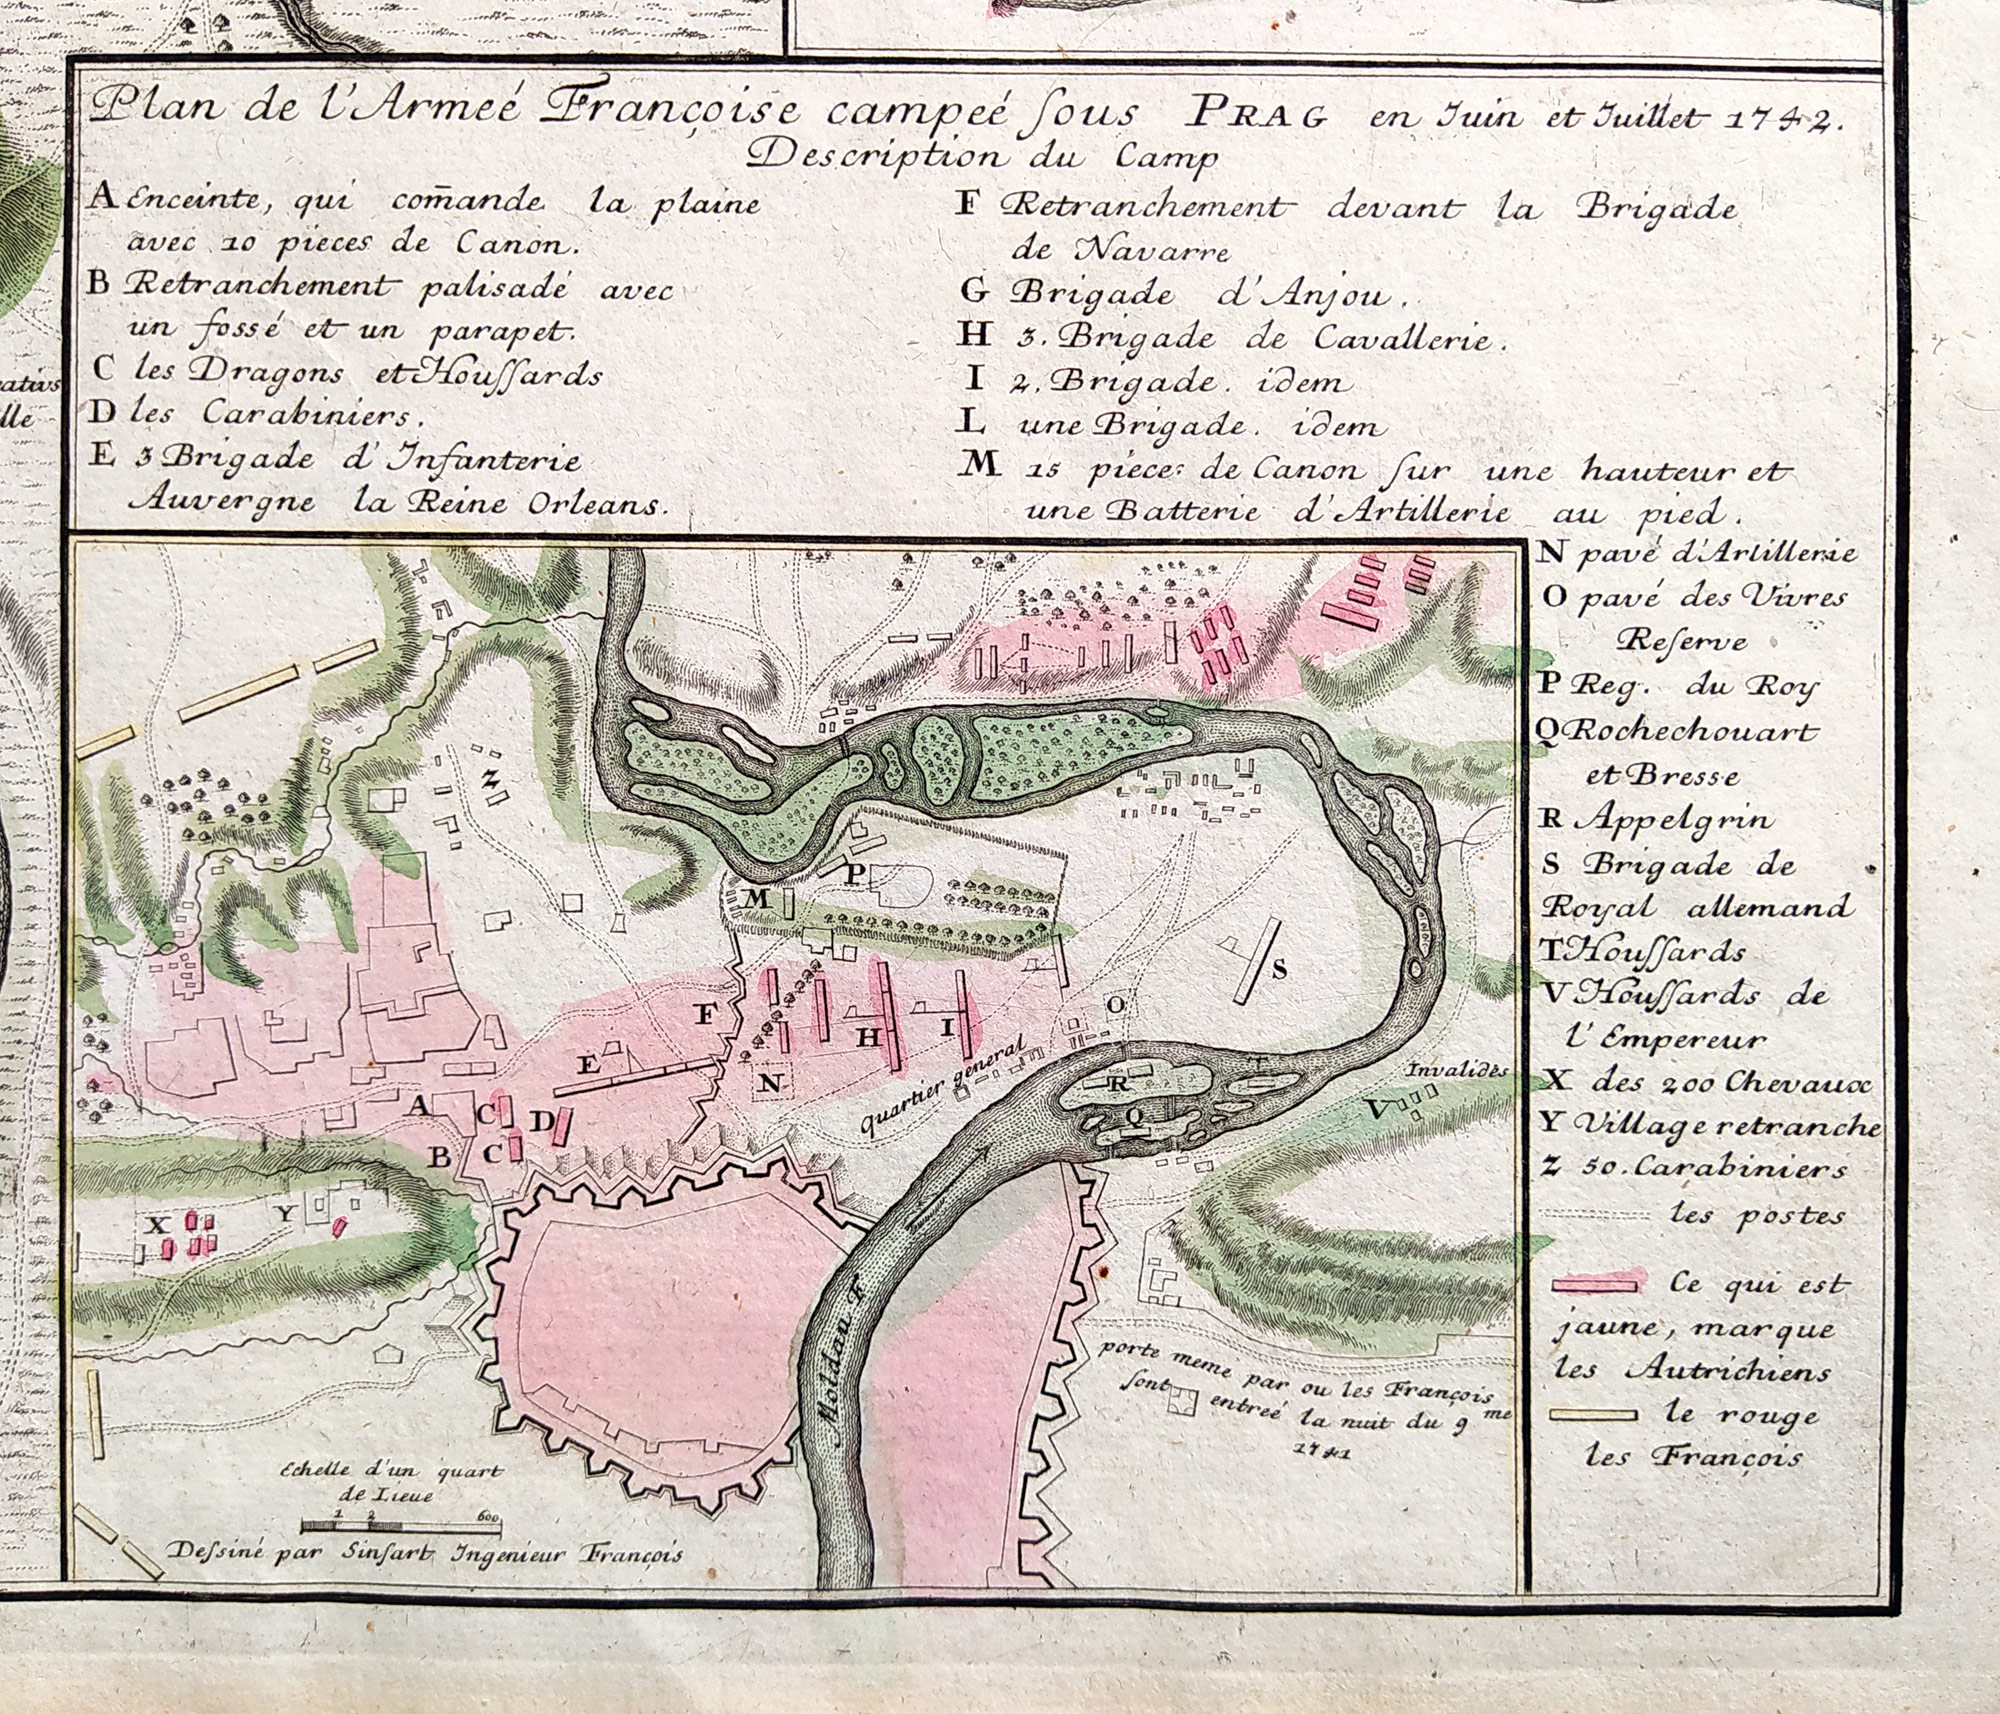 Plan de l'Armeé Françoise campeé ſous PRAG en Iuin et Iuillet 1742.
Description du Camp
A Enceinte, qui com̄ande la plaine
avec 10 pieces de Canon.
B Retranchement palisadé avec
un fossé et un parapet.
C les Dragons et Houſſards
D les Carabiniers.
E 3 Brigade d'Infanterie
Auvergne la Reine Orleans.
F Retranchement devant la Brigade
de Navarre
G Brigade d'Anjou.
H 3. Brigade de Cavallerie.
I 2. Brigade. idem
L une Brigade. idem
M 15 piece: de Canon ſur une hauteur et
une Batterie d'Artillerie au pied.
N pavé d'Artillerie
O pavé des Vivres
Reſerve
P Reg. du Roy
Q Rochechouart
et Bresse
R Appelgrin
S Brigade de
Royal allemand
T Houſſards
V Houſſards de
l'Empereur
X des 200 Chevaux
Y Village retranche
Z 50. Carabiniers
les postes
Ce qui est
jaune, marque
les Autrichiens
le rouge
les François
lle
Z
M
P
S
F
H
I
O
E
N
quartier general
R
T
Q
Invalides
V
A
C
D
B
C
X
Y
Moldau F.
porte meme par ou les François
ſont entreé la nuit du 9me
1741
Echelle d'un quart
de Lieue
1 2 600
Deſsiné par Sinſart Ingenieur François